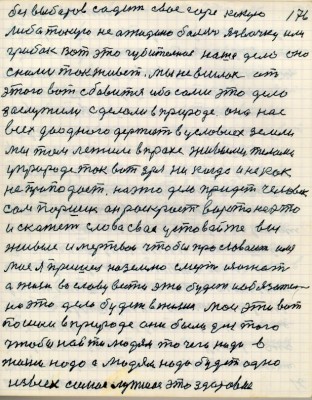 без выборов садит свое горе какую 176
либо такую не ожидано болеть язвочку или
грибок вот это губительное наше дело оно
с нами так живет. мы не в силах от
этого вот сбавится ибо сами это дело
заслужили сделали в природе она нас
всех до одного держит в условиях земли
мы там лежим в прахе живыми телами
у природе так вот зря никогда и никак
не пропадает. на это дело придет человек
сам Паршек он раскроет ворота на это
и скажет слова свая уставайте вы
живые и мертвои чтобы прославил имя
мае я пришел на землю смерть изгнать
а жизнь во славу вести это будет и обязательно
на это дело будет в жизни мои эти вот
пошли в природе они были для того
чтобы найти людям то чего надо в
жизни надо а людям надо будет одно
из всех самое лучшее это здоровье